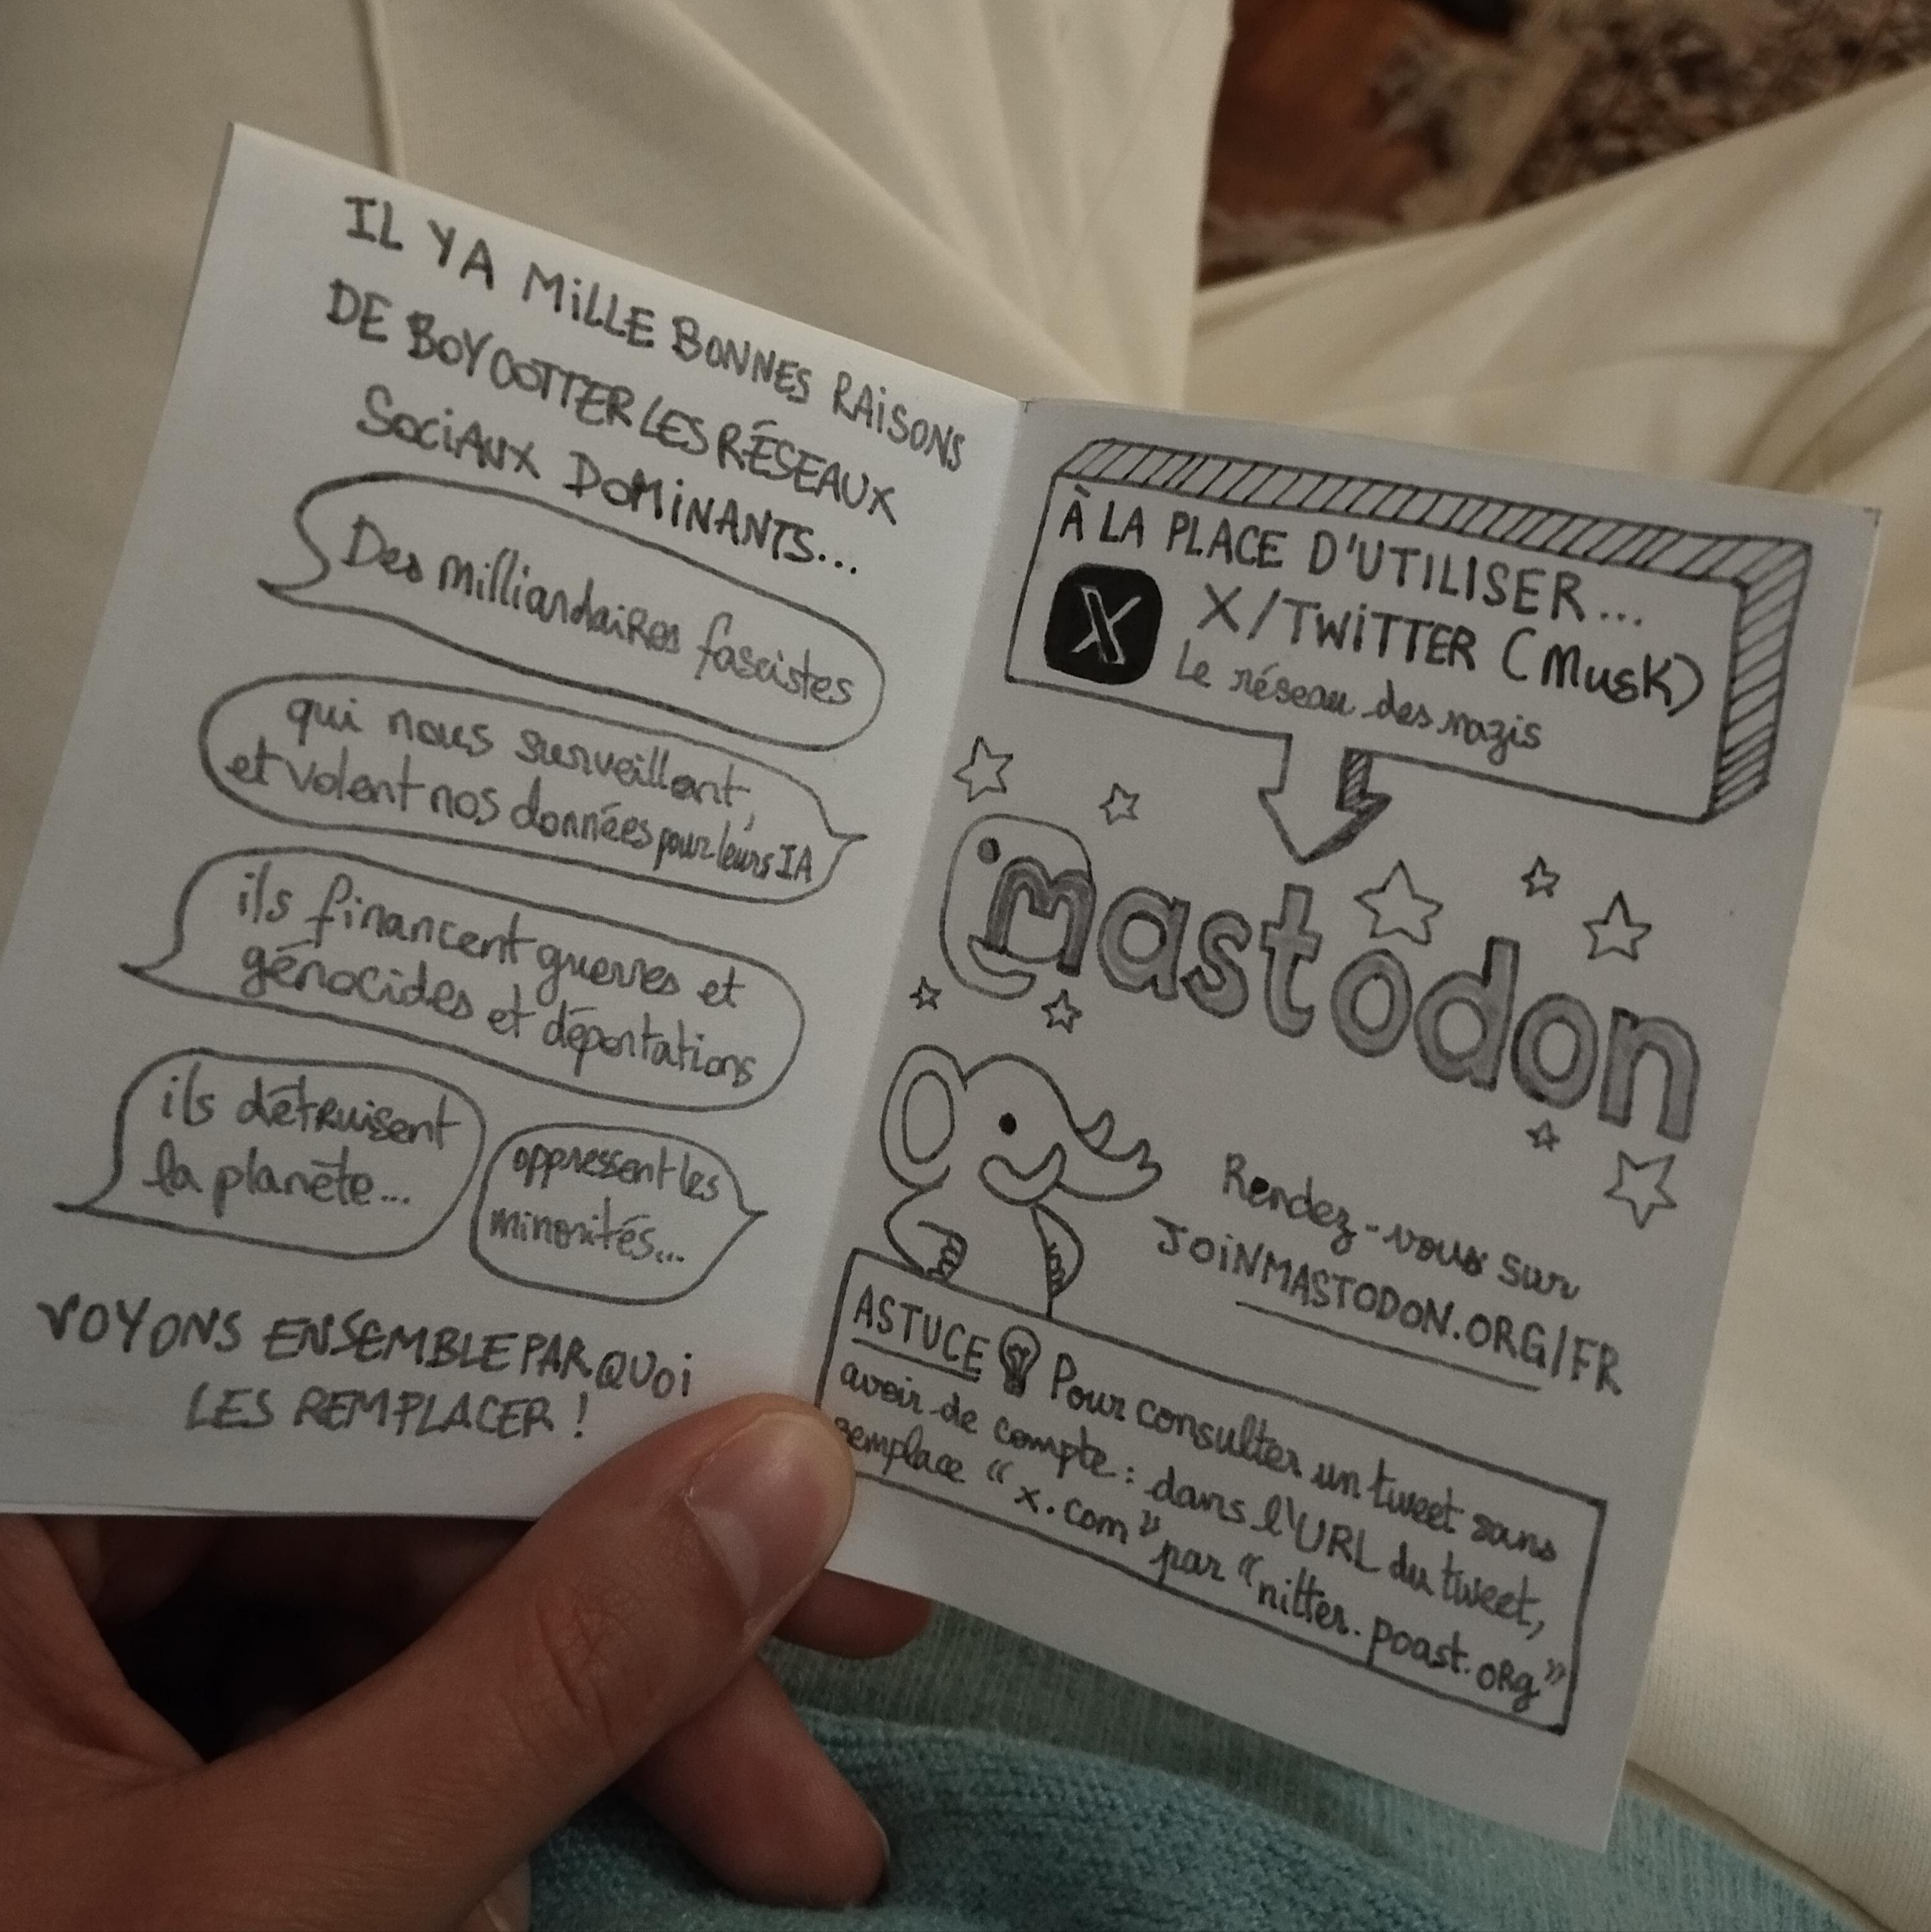 IL Y A MiLLE BONNES RAiSONS
DE BOYCOTTER LES RÉSEAUX
SOCiAUX DOMiNANTS...
Des milliardaires fascistes
qui nous surveillent,
et volent nos données pour leurs IA
ils financent guerres et
génocides et déportations
ils détruisent
la planète...
oppressent les
minorités...
VOYONS ENSEMBLE PAR QUOi
LES REMPLACER !
À LA PLACE D'UTILISER...
X
X/TWiTTER (Musk)
Le réseau des nazis
mastodon
Rendez-vous sur
JOiNMASTODON.ORG/FR
ASTUCE Pour consulter un tweet sans
avoir de compte : dans l'URL du tweet,
remplace "x.com" par "nitter.poast.org"